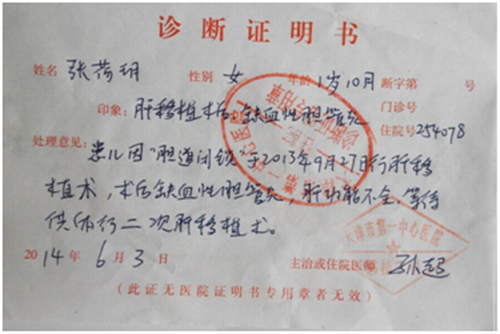 诊断证明书
姓名 张荷玥 性别 女 年龄 1岁10月 断字第 号
印象：肝移植术后 缺血性胆管炎 门诊号
住院号254078
处理意见：患儿因"胆道闭锁"于2013年9月27日行肝移
植术，术后缺血性胆管炎，肝功能不全，等待
供体行二次肝移植术。
天津市第一中心医院
2014年6月3日 主治或住院医师
（此证无医院证明书专用章者无效）